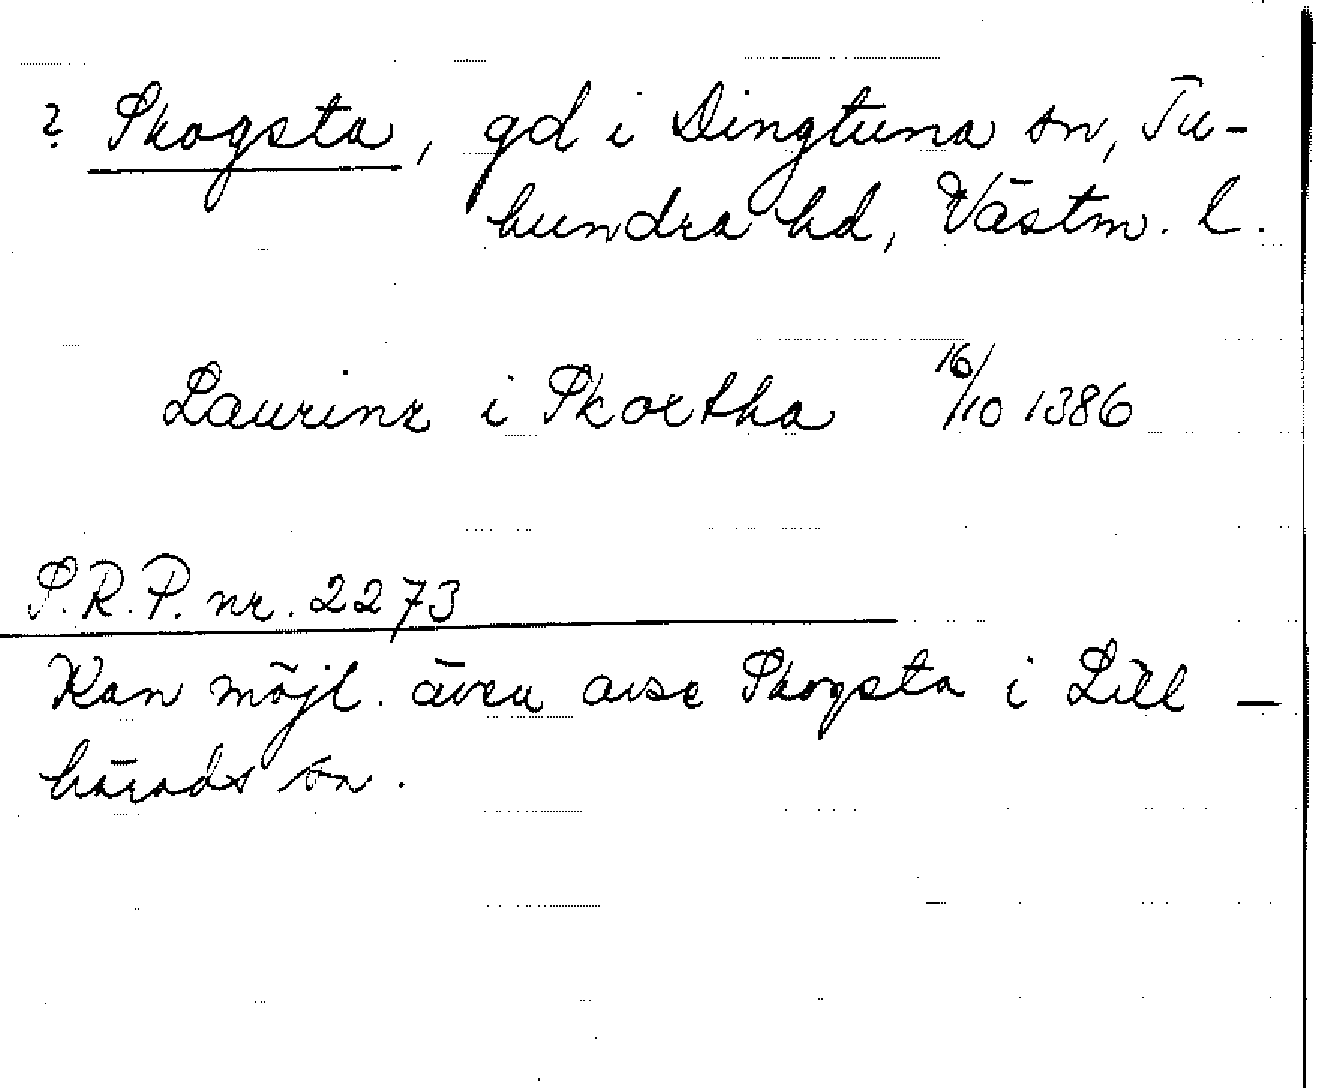 ? Skogsta, gd i Dingtuna sn, Tu-
hundra hd, Västm. l.
Laurinz i Skoxtha 16/10 1386
S.R.P. nr. 2273
Kan möjl. även avse Skogsta i Lill-
härads sn.